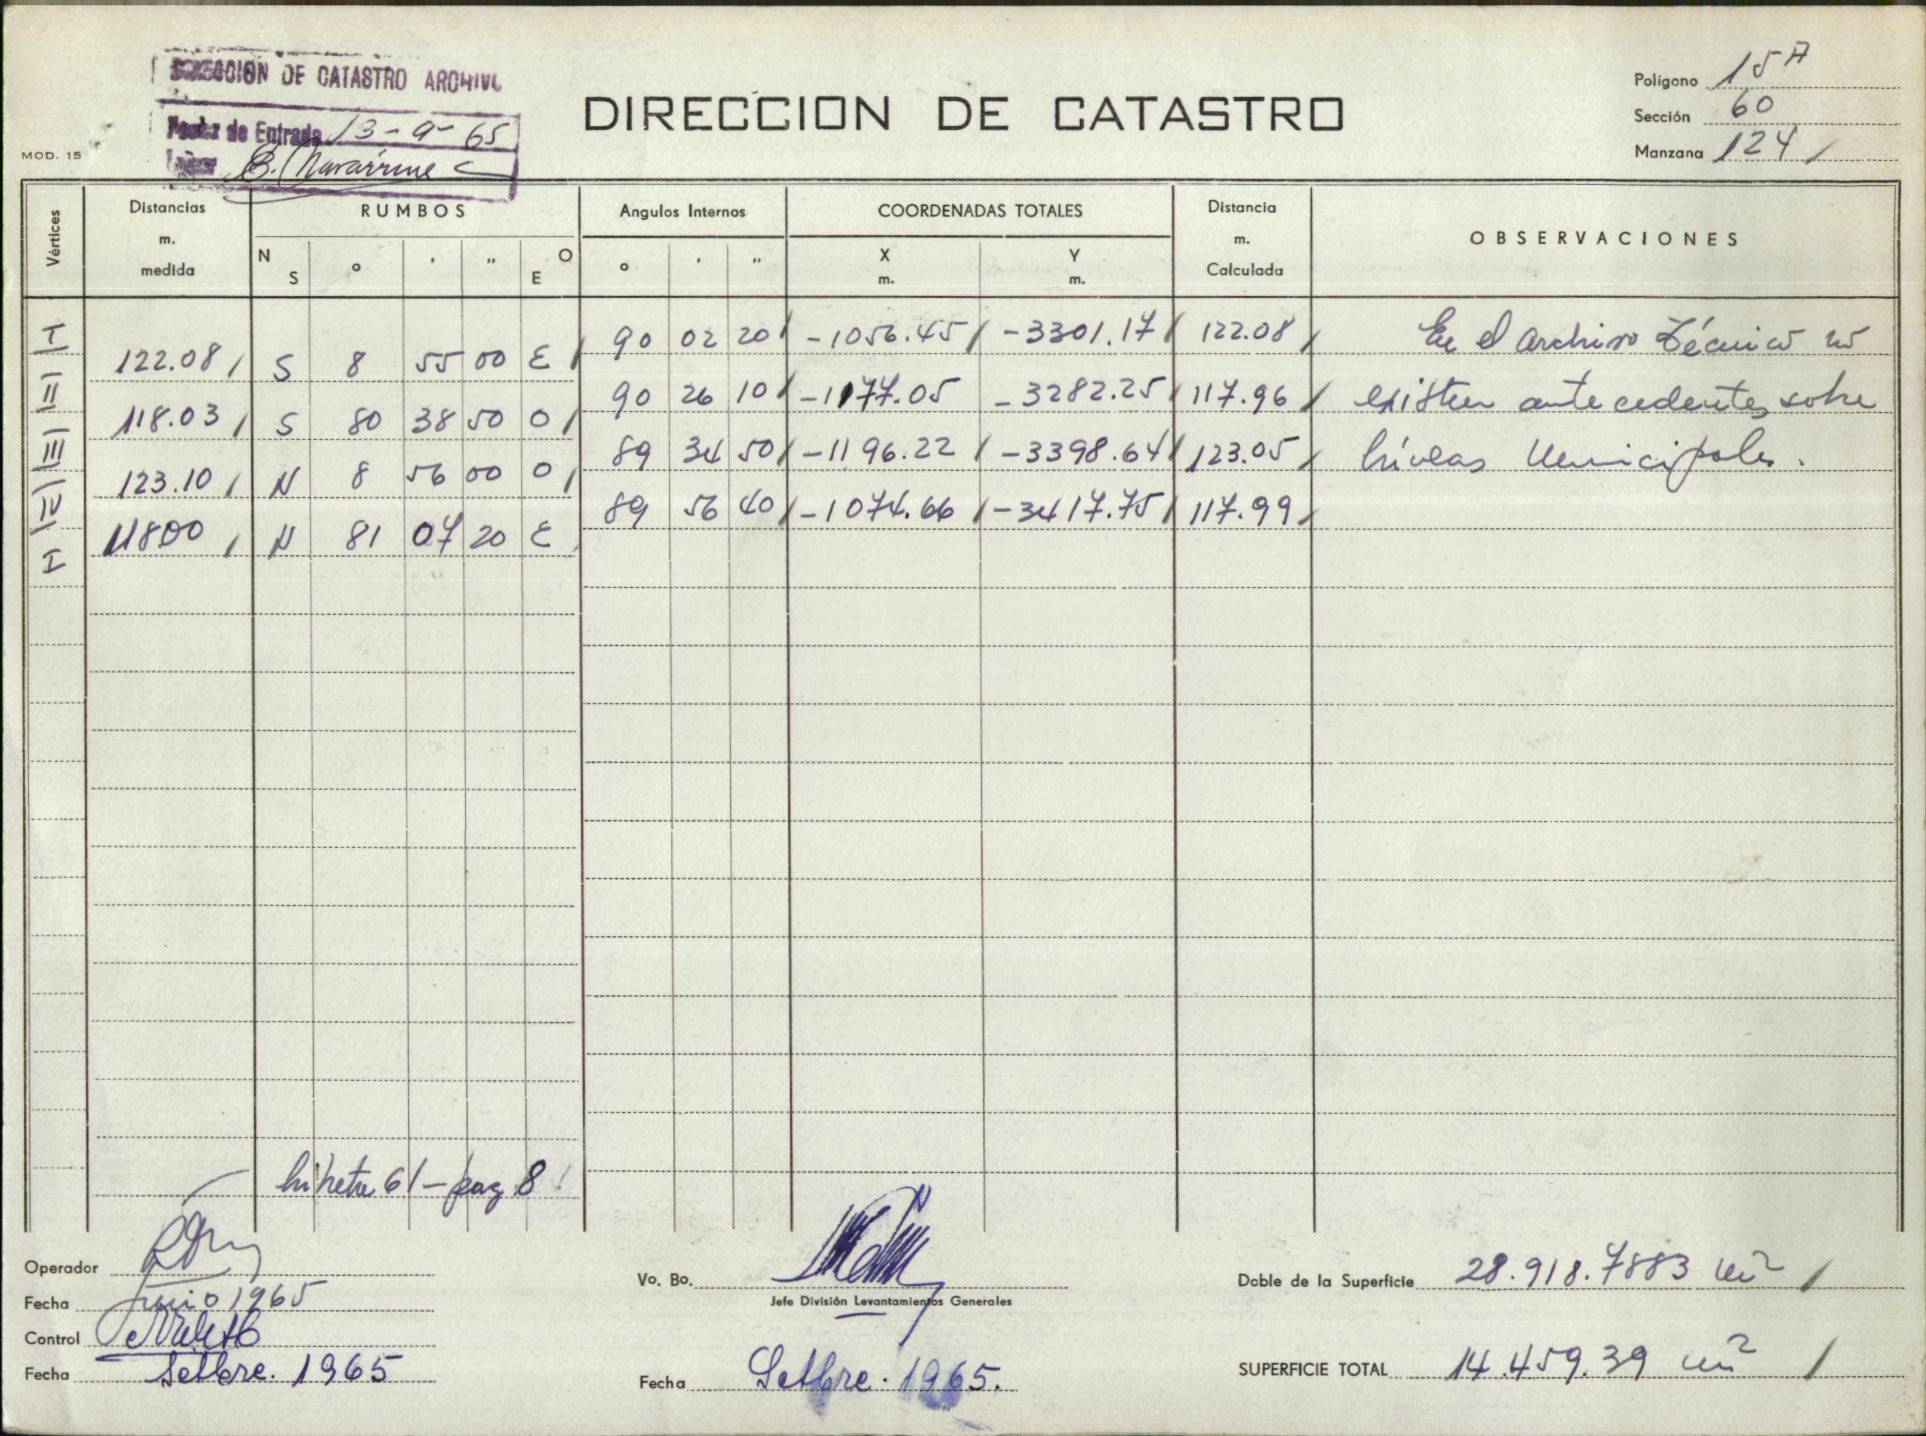 DIRECCION DE CATASTRO ARCHIVO
Fecha de Entrada 13-9-65
B. Navarrine
MOD. 15
DIRECCION DE CATASTRO
Polígono 15A
Sección 60
Manzana 124
Vértices
Distancias m. medida
RUMBOS
N S ° ' " E O
Angulos Internos
° ' "
COORDENADAS TOTALES
X m. Y m.
Distancia m. Calculada
OBSERVACIONES
I 90 02 20 -1056.45 -3301.17 122.08 En el archivo Técnico no
122.08 S 8 55 00 E
II 90 26 10 -1177.05 -3282.25 117.96 existen antecedentes sobre
118.03 S 80 38 50 O
III 89 34 50 -1196.22 -3398.64 123.05 líneas Municipales.
123.10 N 8 56 00 O
IV 89 56 40 -1074.66 -3417.75 117.99
11800 N 81 07 20 E
I
libreta 61 - pag 8
Operador
Fecha junio 1965
Control
Fecha Setbre. 1965
Vo. Bo.
Jefe División Levantamientos Generales
Fecha Setbre. 1965.
Doble de la Superficie 28.918.7883 m²
SUPERFICIE TOTAL 14.459.39 m²